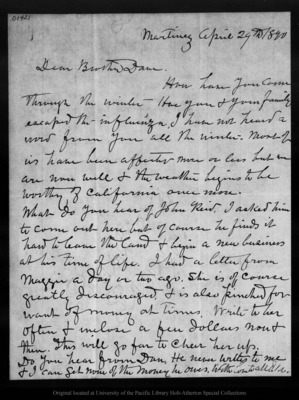 01425
Martinez April 29th 1890
Dear Brother Dave.
How have you come
through the winter Have you & your family
escaped the influenza, I have not heard a
word from you all the winter. Most of
us have been affected more or less but we
are now well & the weather begins to be
worthy of California once more.
What do you hear of John Reid, I asked him
to come out here but of course he finds it
hard to leave the land & begin a new business
at his time of life. I had a letter from
Maggie a day or two ago. She is of course
greatly discouraged & is also pinched for
want of money at times. Write to her
often & inclose a few dollars now &
then. This will go far to cheer her up.
Do you hear from Dan. He never writes to me
& I can get none of the money he owes.
Original located at University of the Pacific Library Holt-Atherton Special Collections